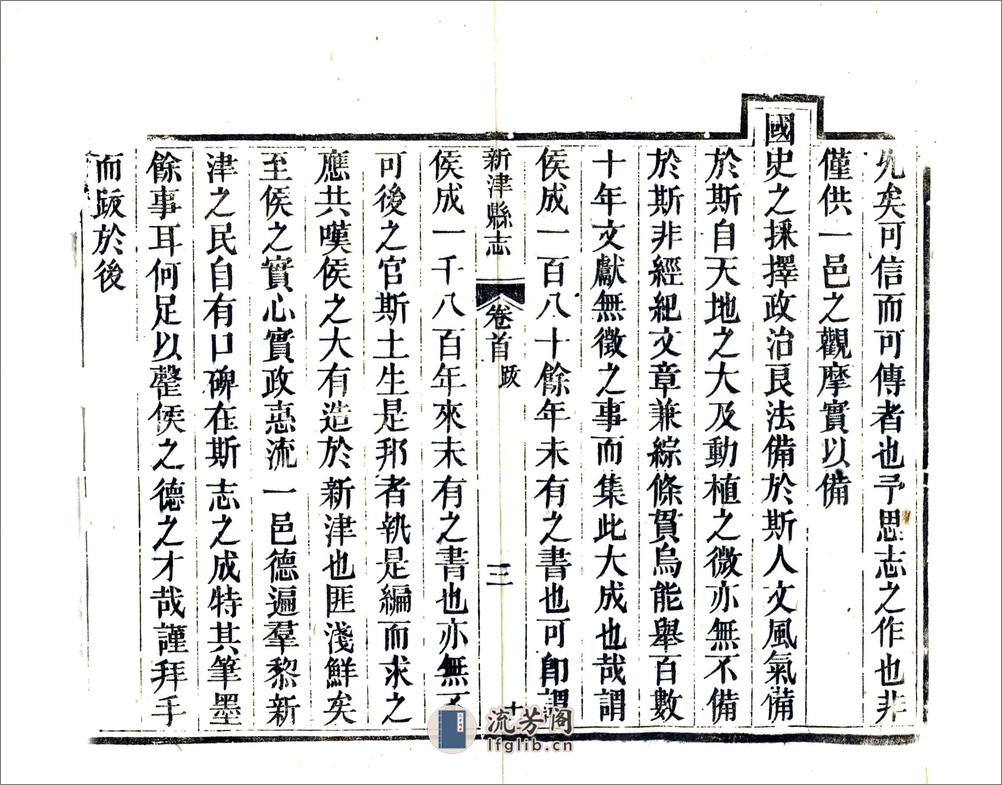 允矣可信而可傳者也予思志之作也非
僅供一邑之觀摩實以備
國史之採擇政治良法備於斯人文風氣備
於斯自天地之大及動植之微亦無不備
於斯非經紀文章兼綜條貫烏能舉百數
十年文獻無徵之事而集此大成也哉謂
侯成一百八十餘年未有之書也可卽謂
新津縣志 卷首 跋 三
侯成一千八百年來未有之書也亦無不
可後之官斯土生是邦者執是編而求之
應共嘆侯之大有造於新津也匪淺鮮矣
至侯之實心實政惠流一邑德遍羣黎新
津之民自有口碑在斯志之成特其筆墨
餘事耳何足以罄侯之德之才哉謹拜手
而跋於後
流芳阁
lfglib.cn